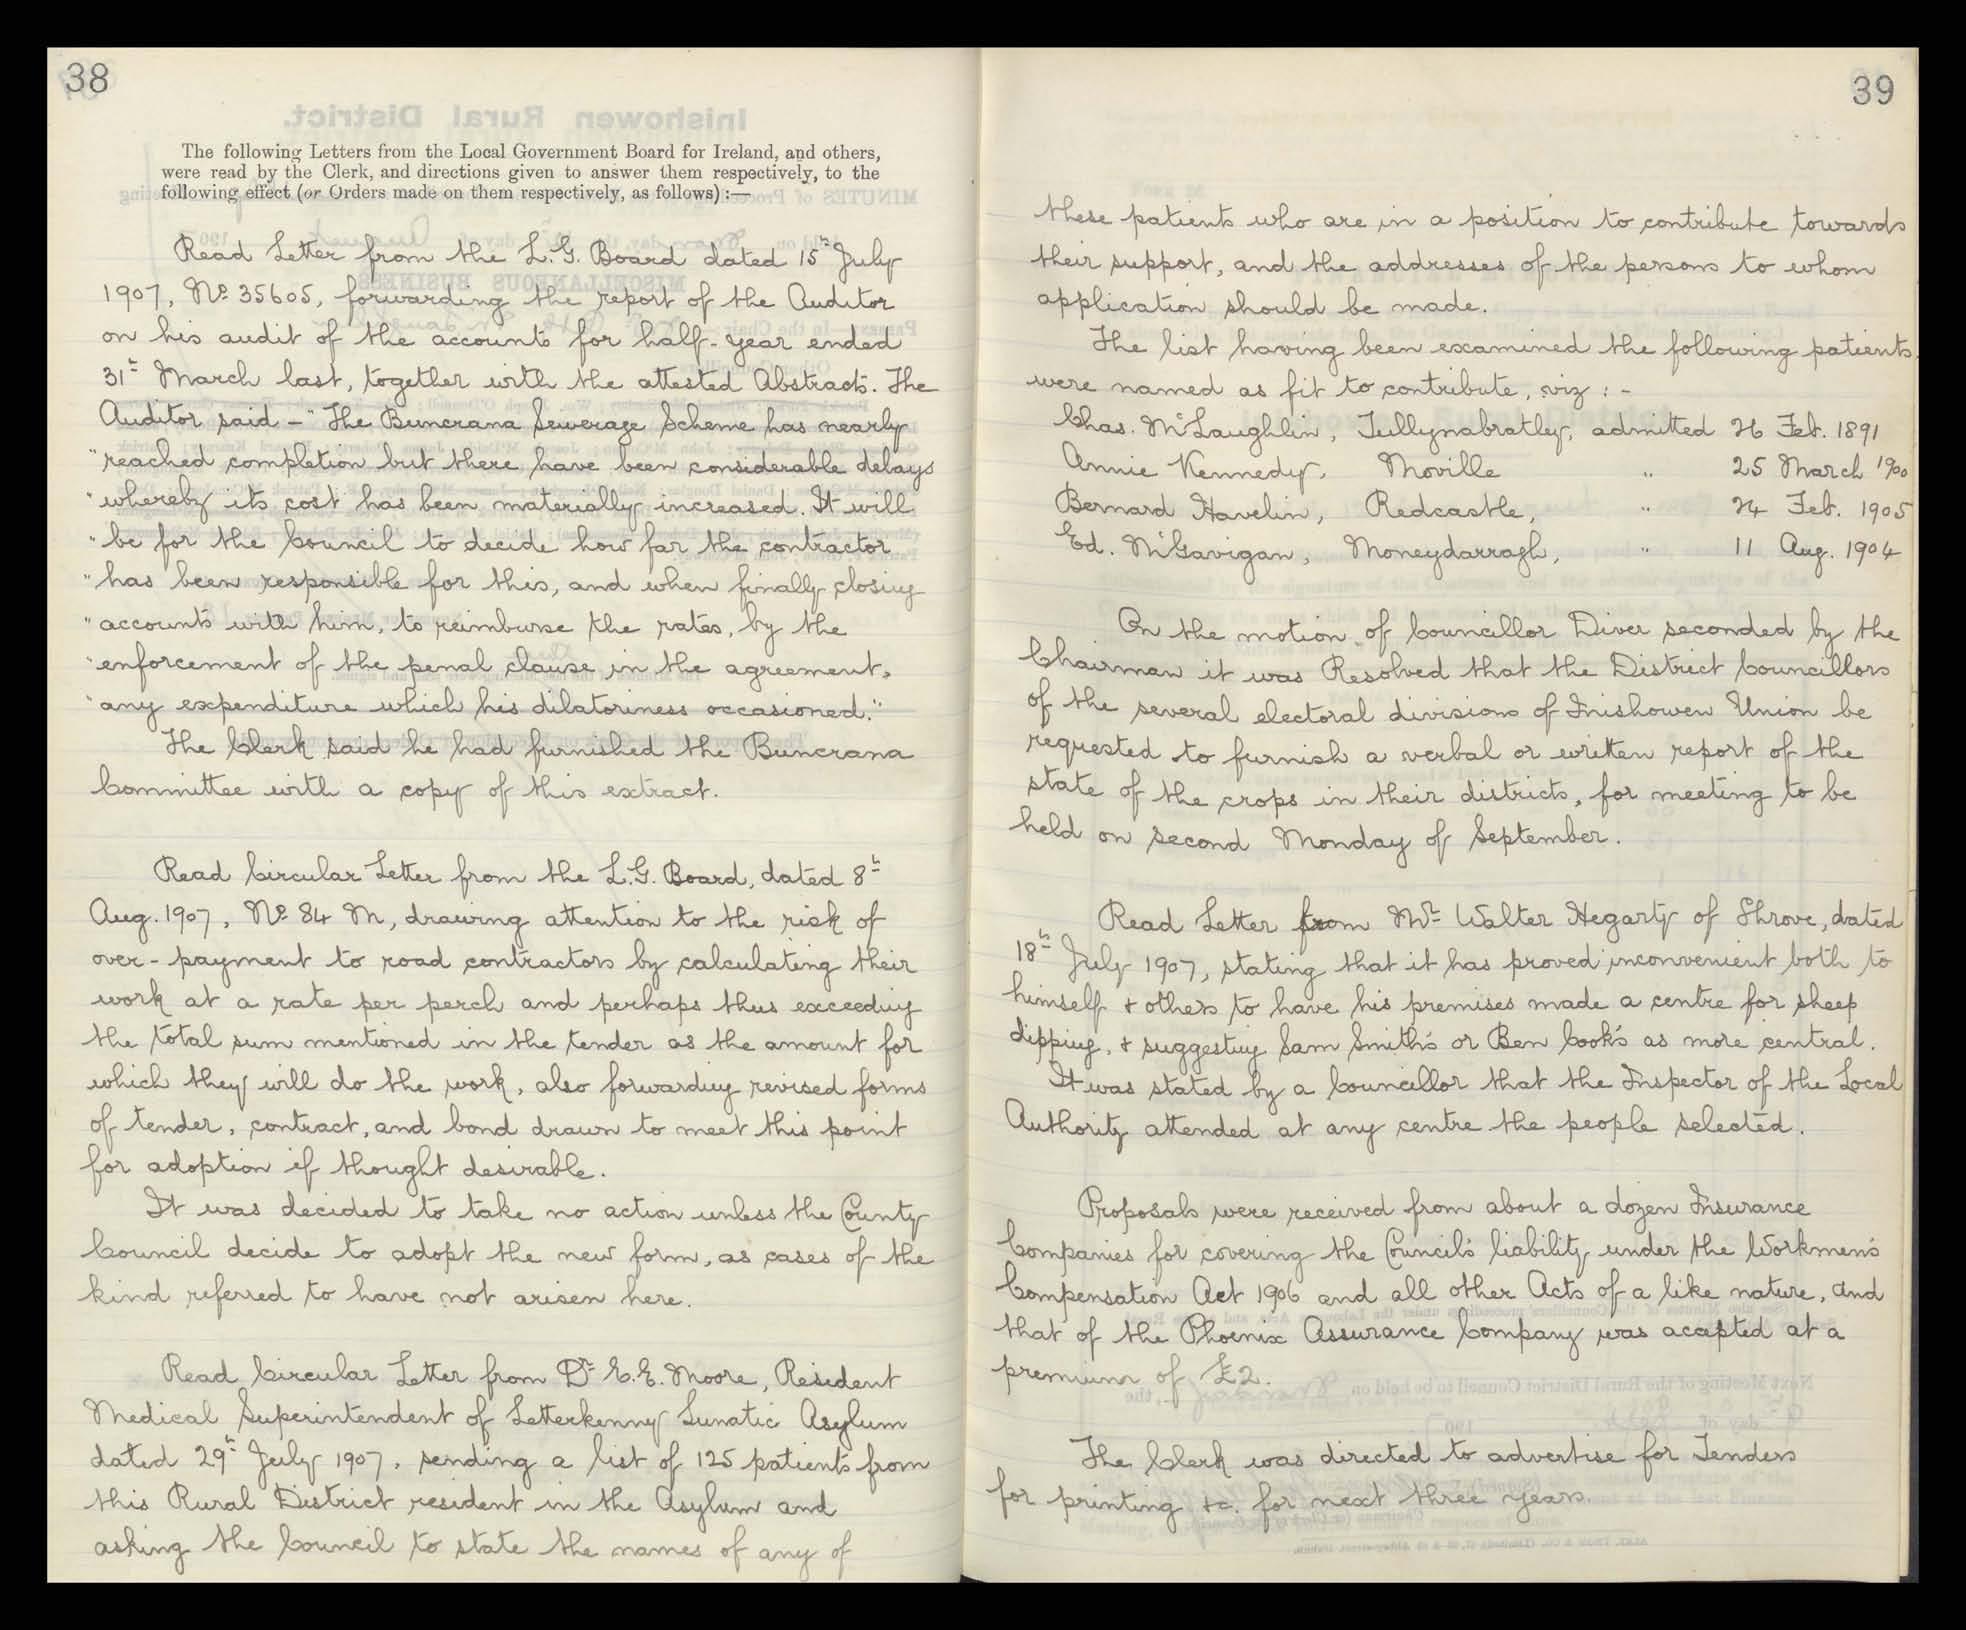 38
The following Letters from the Local Government Board for Ireland, and others,
were read by the Clerk, and directions given to answer them respectively, to the
following effect (or Orders made on them respectively, as follows) :—
Read Letter from the L.G. Board dated 15th July
1907, No. 35605, forwarding the report of the Auditor
on his audit of the accounts for half-year ended
31st March last, together with the attested Abstracts. The
Auditor said - "The Buncrana Sewerage Scheme has nearly
"reached completion but there have been considerable delays
"whereby its cost has been materially increased. It will
"be for the Council to decide how far the contractor
"has been responsible for this, and when finally closing
"accounts with him, to reimburse the rates, by the
"enforcement of the penal clause in the agreement,
"any expenditure which his dilatoriness occasioned."
The Clerk said he had furnished the Buncrana
Committee with a copy of this extract.
Read Circular Letter from the L.G. Board, dated 8th
Aug. 1907, No. 84 M, drawing attention to the risk of
over-payment to road contractors by calculating their
work at a rate per perch and perhaps thus exceeding
the total sum mentioned in the tender as the amount for
which they will do the work, also forwarding revised forms
of tender, contract, and bond drawn to meet this point
for adoption if thought desirable.
It was decided to take no action unless the County
Council decide to adopt the new form, as cases of the
kind referred to have not arisen here.
Read Circular Letter from Dr. E.E. Moore, Resident
Medical Superintendent of Letterkenny Lunatic Asylum
dated 29th July 1907, sending a list of 125 patients from
this Rural District resident in the Asylum and
asking the Council to state the names of any of
39
these patients who are in a position to contribute towards
their support, and the addresses of the persons to whom
application should be made.
The list having been examined the following patients
were named as fit to contribute, viz :-
Chas. McLaughlin, Tullynabratley, admitted 26 Feb. 1891
Annie Kennedy, Moville " 25 March 1900
Bernard Havelin, Redcastle, " 24 Feb. 1905
Ed. McGavigan, Moneydarragh, " 11 Aug. 1904
On the motion of Councillor Diver seconded by the
Chairman it was Resolved that the District Councillors
of the several electoral divisions of Inishowen Union be
requested to furnish a verbal or written report of the
state of the crops in their districts, for meeting to be
held on second Monday of September.
Read Letter from Mr. Walter Hegarty of Shrove, dated
18th July 1907, stating that it has proved inconvenient both to
himself & others to have his premises made a centre for sheep
dipping, & suggesting Sam Smith's or Ben Cook's as more central.
It was stated by a Councillor that the Inspector of the Local
Authority attended at any centre the people selected.
Proposals were received from about a dozen Insurance
Companies for covering the Council's liability under the Workmen's
Compensation Act 1906 and all other Acts of a like nature, and
that of the Phoenix Assurance Company was accepted at a
premium of £2.
The Clerk was directed to advertise for Tenders
for printing &c. for next three years.